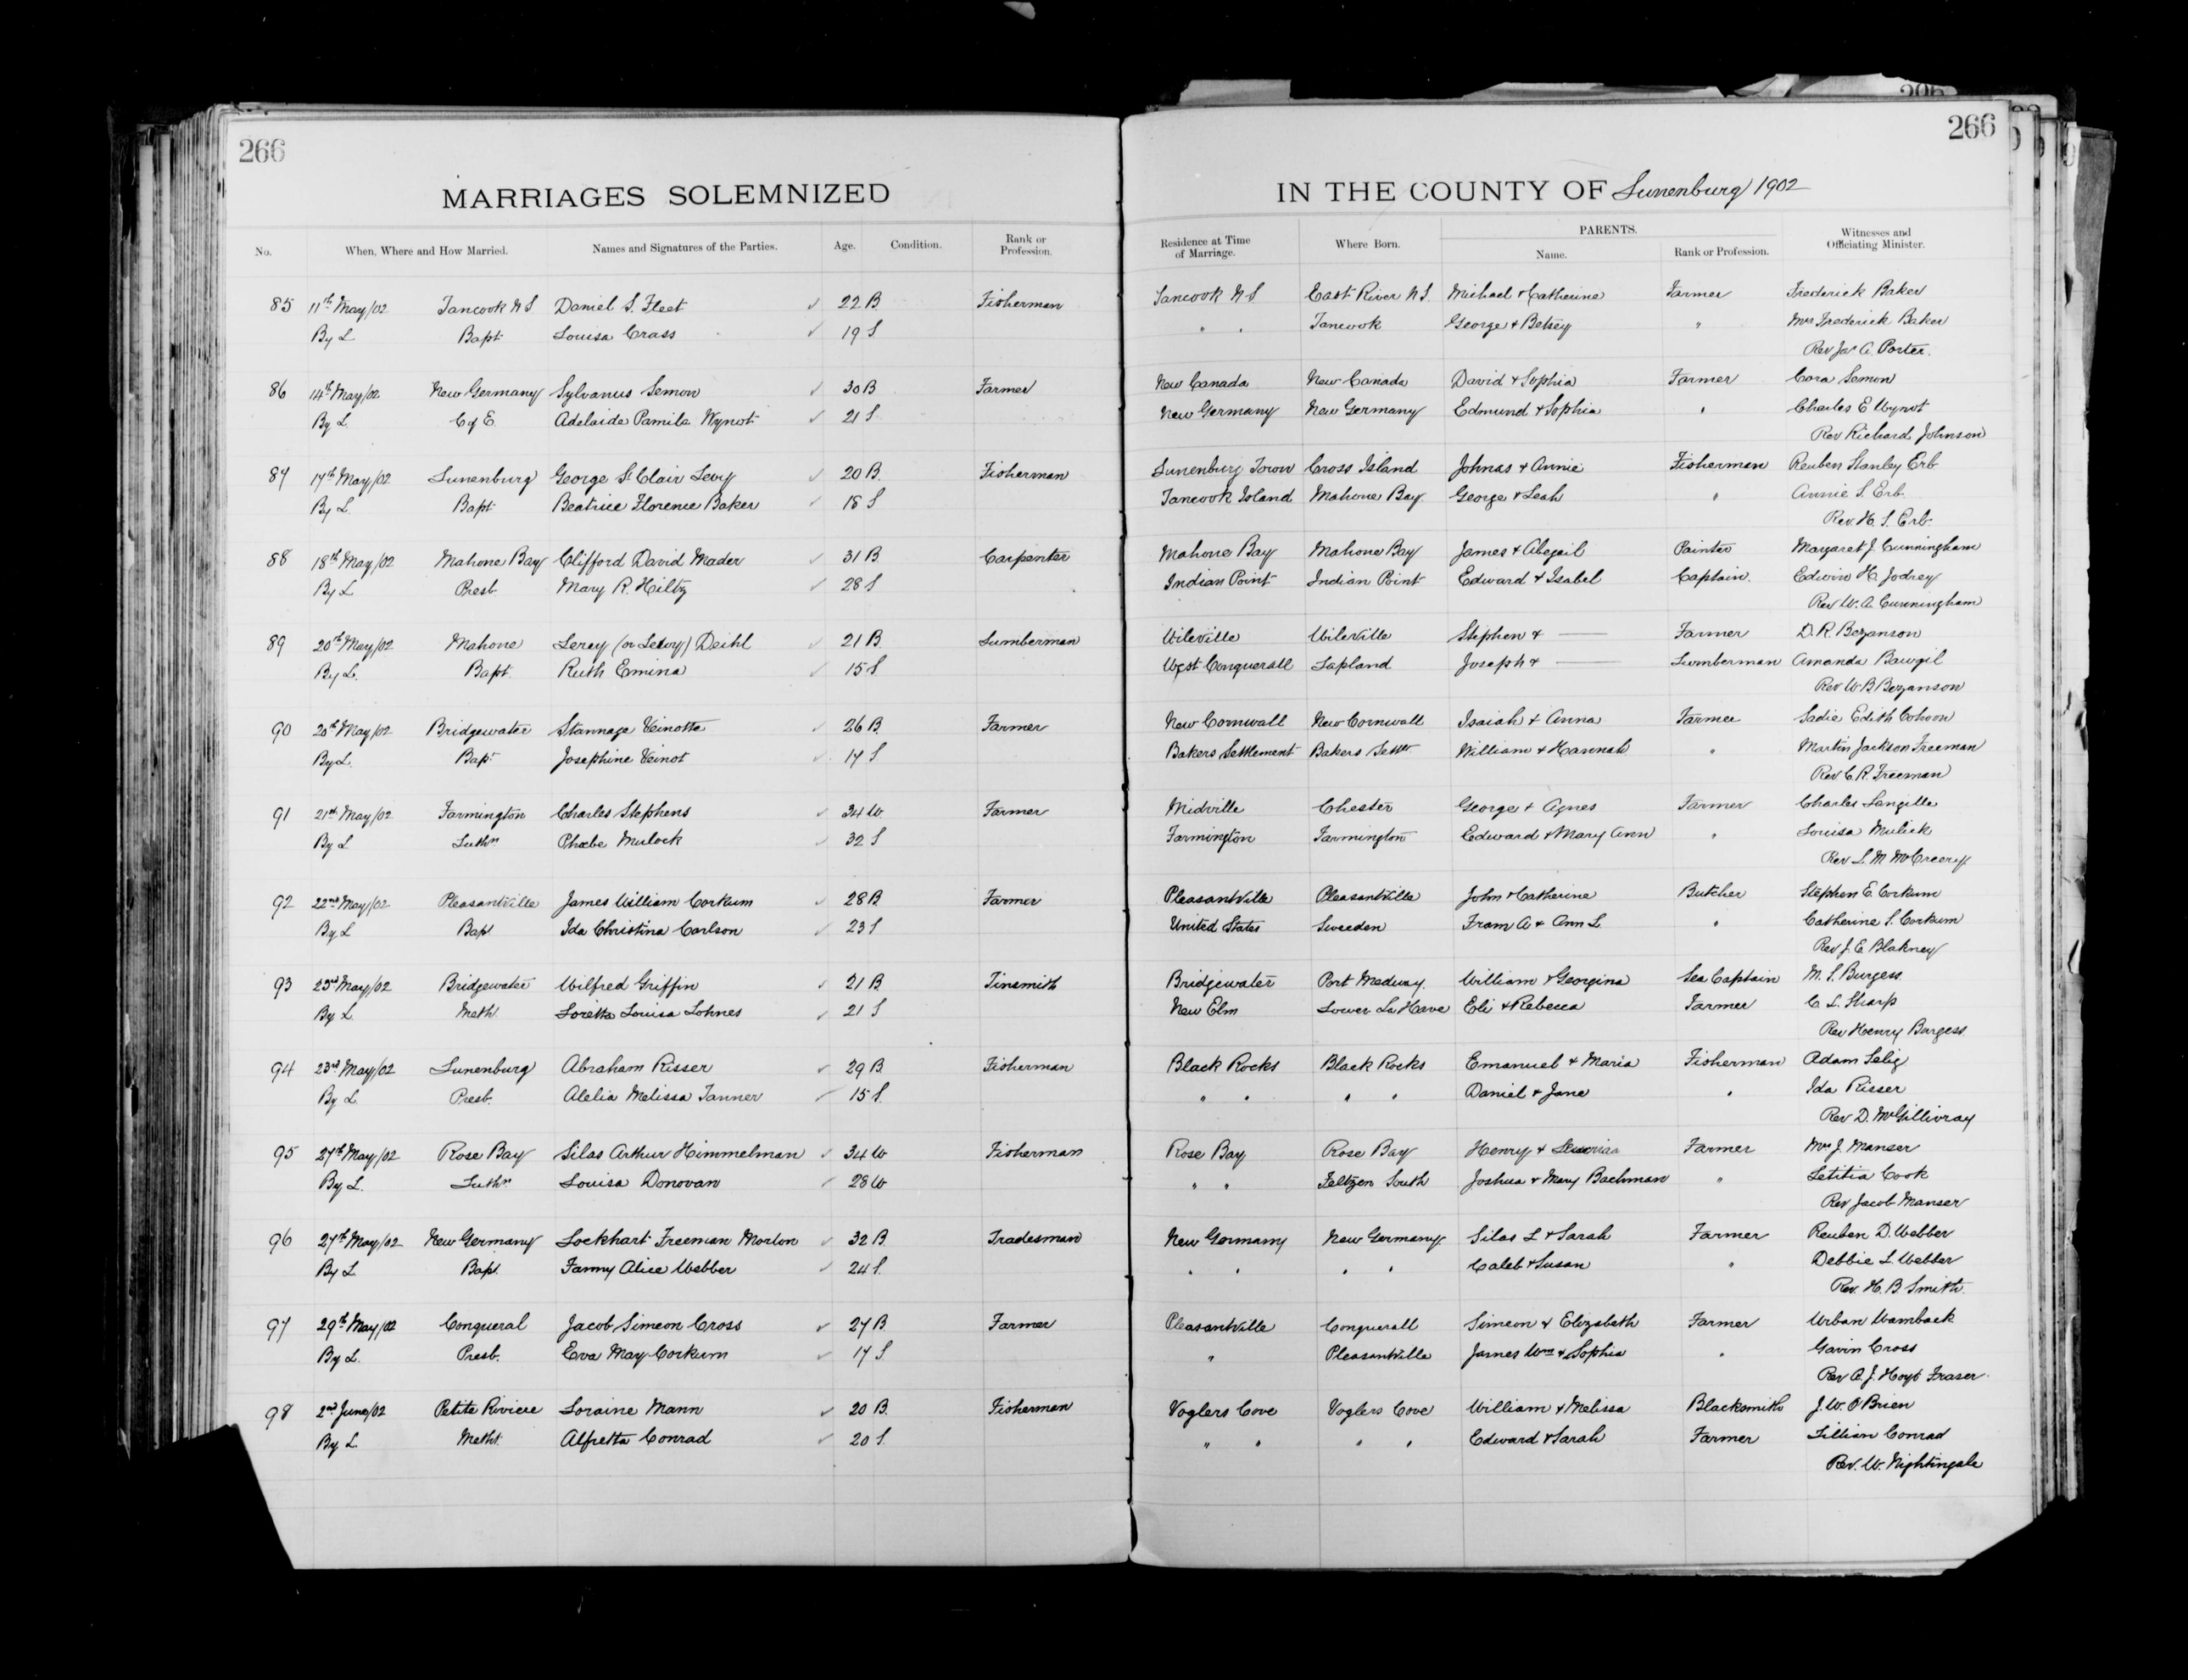 266
MARRIAGES SOLEMNIZED
No. When, Where and How Married. Names and Signatures of the Parties. Age. Condition. Rank or Profession.
85 11th May/02 Tancook N S Daniel S. Fleet 22 B Fisherman
By L Bapt. Louisa Crass 19 S
86 14th May/02 New Germany Sylvanus Semon 30 B Farmer
By L. C of E. Adelaide Pamila Wynot 21 S
87 17th May/02 Lunenburg George St Clair Levy 20 B. Fisherman
By L. Bapt. Beatrice Florence Baker 18 S
88 18th May/02 Mahone Bay Clifford David Mader 31 B. Carpenter
By L Presb. Mary R. Hiltz 28 S
89 20th May/02 Mahone Leroy (or Lewy) Deihl 21 B. Lumberman
By L. Bapt. Ruth Emina 15 S
90 20th May/02 Bridgewater Stannage Veinotte 26 B. Farmer
By L. Bapt Josephine Veinot 17 S
91 21st May/02 Farmington Charles Stephens 34 W Farmer
By L Luthn Phœbe Mulock 32 S
92 22nd May/02 Pleasantville James William Corkum 28 B Farmer
By L Bapt Ida Christina Carlson 23 S
93 23rd May/02 Bridgewater Wilfred Griffin 21 B. Tinsmith
By L. Meth. Loretta Louisa Lohnes 21 S
94 23rd May/02 Lunenburg Abraham Risser 29 B Fisherman
By L. Presb. Alelia Melissa Tanner 15 S.
95 27th May/02 Rose Bay Silas Arthur Himmelman 34 W Fisherman
By L. Luthn Louisa Donovan 28 W
96 27th May/02 New Germany Lockhart Freeman Morton 32 B. Tradesman
By L Bapt. Fanny Alice Webber 24 S.
97 29th May/02 Conqueral Jacob Simeon Cross 27 B Farmer
By L. Presb. Eva May Corkum 17 S
98 2nd June/02 Petite Riviere Loraine Mann 20 B. Fisherman
By L. Metht. Alfretta Conrad 20 S.
266
IN THE COUNTY OF Lunenburg 1902
PARENTS.
Residence at Time of Marriage. Where Born. Name. Rank or Profession. Witnesses and Officiating Minister.
Tancook N S East River N S. Michael & Catherine Farmer Frederick Baker
" " Tancook George & Betsey " Mrs Frederick Baker
Rev Jas A. Porter.
New Canada New Canada David & Sophia Farmer Cora Semon
New Germany New Germany Edmund & Sophia " Charles E Wynot
Rev Richard Johnson
Lunenburg Town Cross Island Johnas & Annie Fisherman Reuben Stanley Erb
Tancook Island Mahone Bay George & Leah " Annie S. Erb.
Rev. H. S. Erb.
Mahone Bay Mahone Bay James & Abegail Painter Margaret J. Cunningham
Indian Point Indian Point Edward & Isabel Captain. Edwin H. Jodrey
Rev W. A. Cunningham
Wileville Wileville Stephen & —— Farmer D. R. Bezanson
West Conquerall Lapland Joseph & —— Lumberman Amanda Bawgil
Rev W. B. Bezanson
New Cornwall New Cornwall Isaiah & Anna Farmer Sadie Edith Cohoon
Bakers Settlement Bakers Settt William & Hannah " Martin Jackson Freeman
Rev C. R. Freeman
Midville Chester George & Agnes Farmer Charles Langille
Farmington Farmington Edward & Mary Ann " Louisa Mulick
Rev L. M McCreery
Pleasantville Pleasantville John & Catherine Butcher Stephen E. Corkum
United States Sweeden Fram A & Ann L. " Catherine S. Corkum
Rev J. E. Blakney
Bridgewater Port Medway. William & Georgina Sea Captain M. S. Burgess
New Elm Lower La Have Eli & Rebecca Farmer C. L. Sharp
Rev Henry Burgess
Black Rocks Black Rocks Emanuel & Maria Fisherman Adam Selig
" " " " Daniel & Jane " Ida Risser
Rev D. McGillivray
Rose Bay Rose Bay Henry & Farmer Mrs J. Manser
" " Feltzen South Joshua & Mary Bachman " Letitia Cook
Rev Jacob Manser
New Germany New Germany Silas L & Sarah Farmer Reuben D. Webber
" " " " Caleb & Susan " Debbie L. Webber
Rev. H. B. Smith.
Pleasantville Conquerall Simeon & Elizabeth Farmer Urban Wamback
" Pleasantville James Wm & Sophia " Gavin Cross
Rev A. J. Hoyt Fraser.
Voglers Cove Voglers Cove William & Melissa Blacksmith J. W. O'Brien
" " " " Edward & Sarah Farmer Lillian Conrad
Rev. W. Nightingale